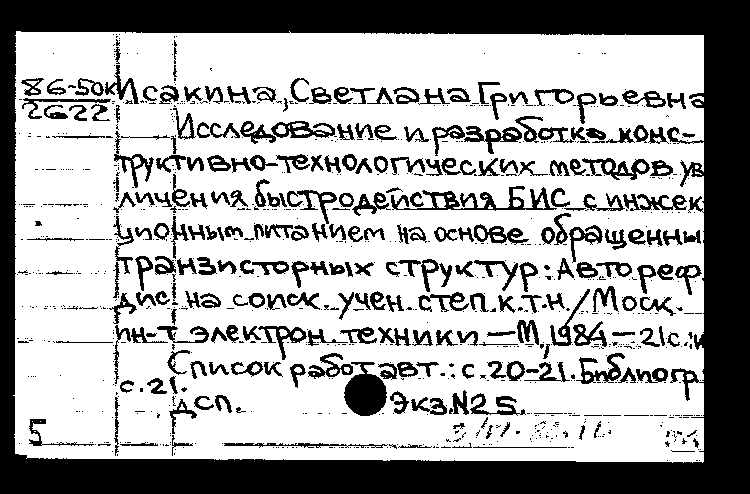 86-50к Исакина, Светлана Григорьевна
2622
Исследование и разработка конс-
труктивно-технологических методов ув
личения быстродействия БИС с инжек
ционным питанием на основе обращенны
транзисторных структур: Автореф.
дис. на соиск. учен. степ. к.т.н. / Моск.
ин-т электрон. техники — М., 1984 — 21с.: и
Список работ авт.: с. 20-21. Библиогр
с. 21.
дсп. Экз. N25.
5